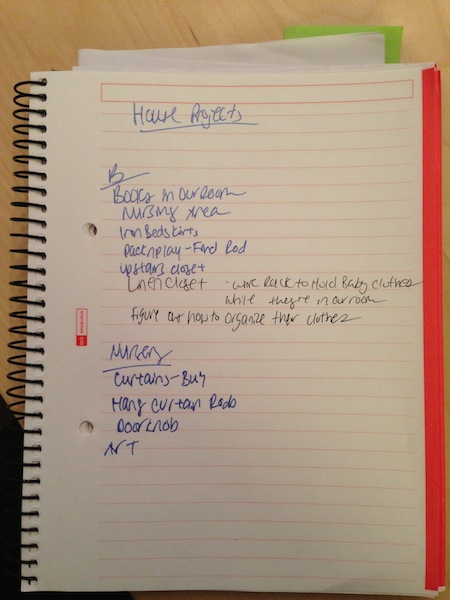 House Projects
B
Books in our room
Nursing Area
Iron Bedskirts
Packnplay - Find Rod
upstairs closet
Linen closet - wire Rack to Hold Baby clothes
while they're in our room
Figure out how to organize their clothes
Nursery
Curtains - Buy
Hang Curtain Rods
Doorknob